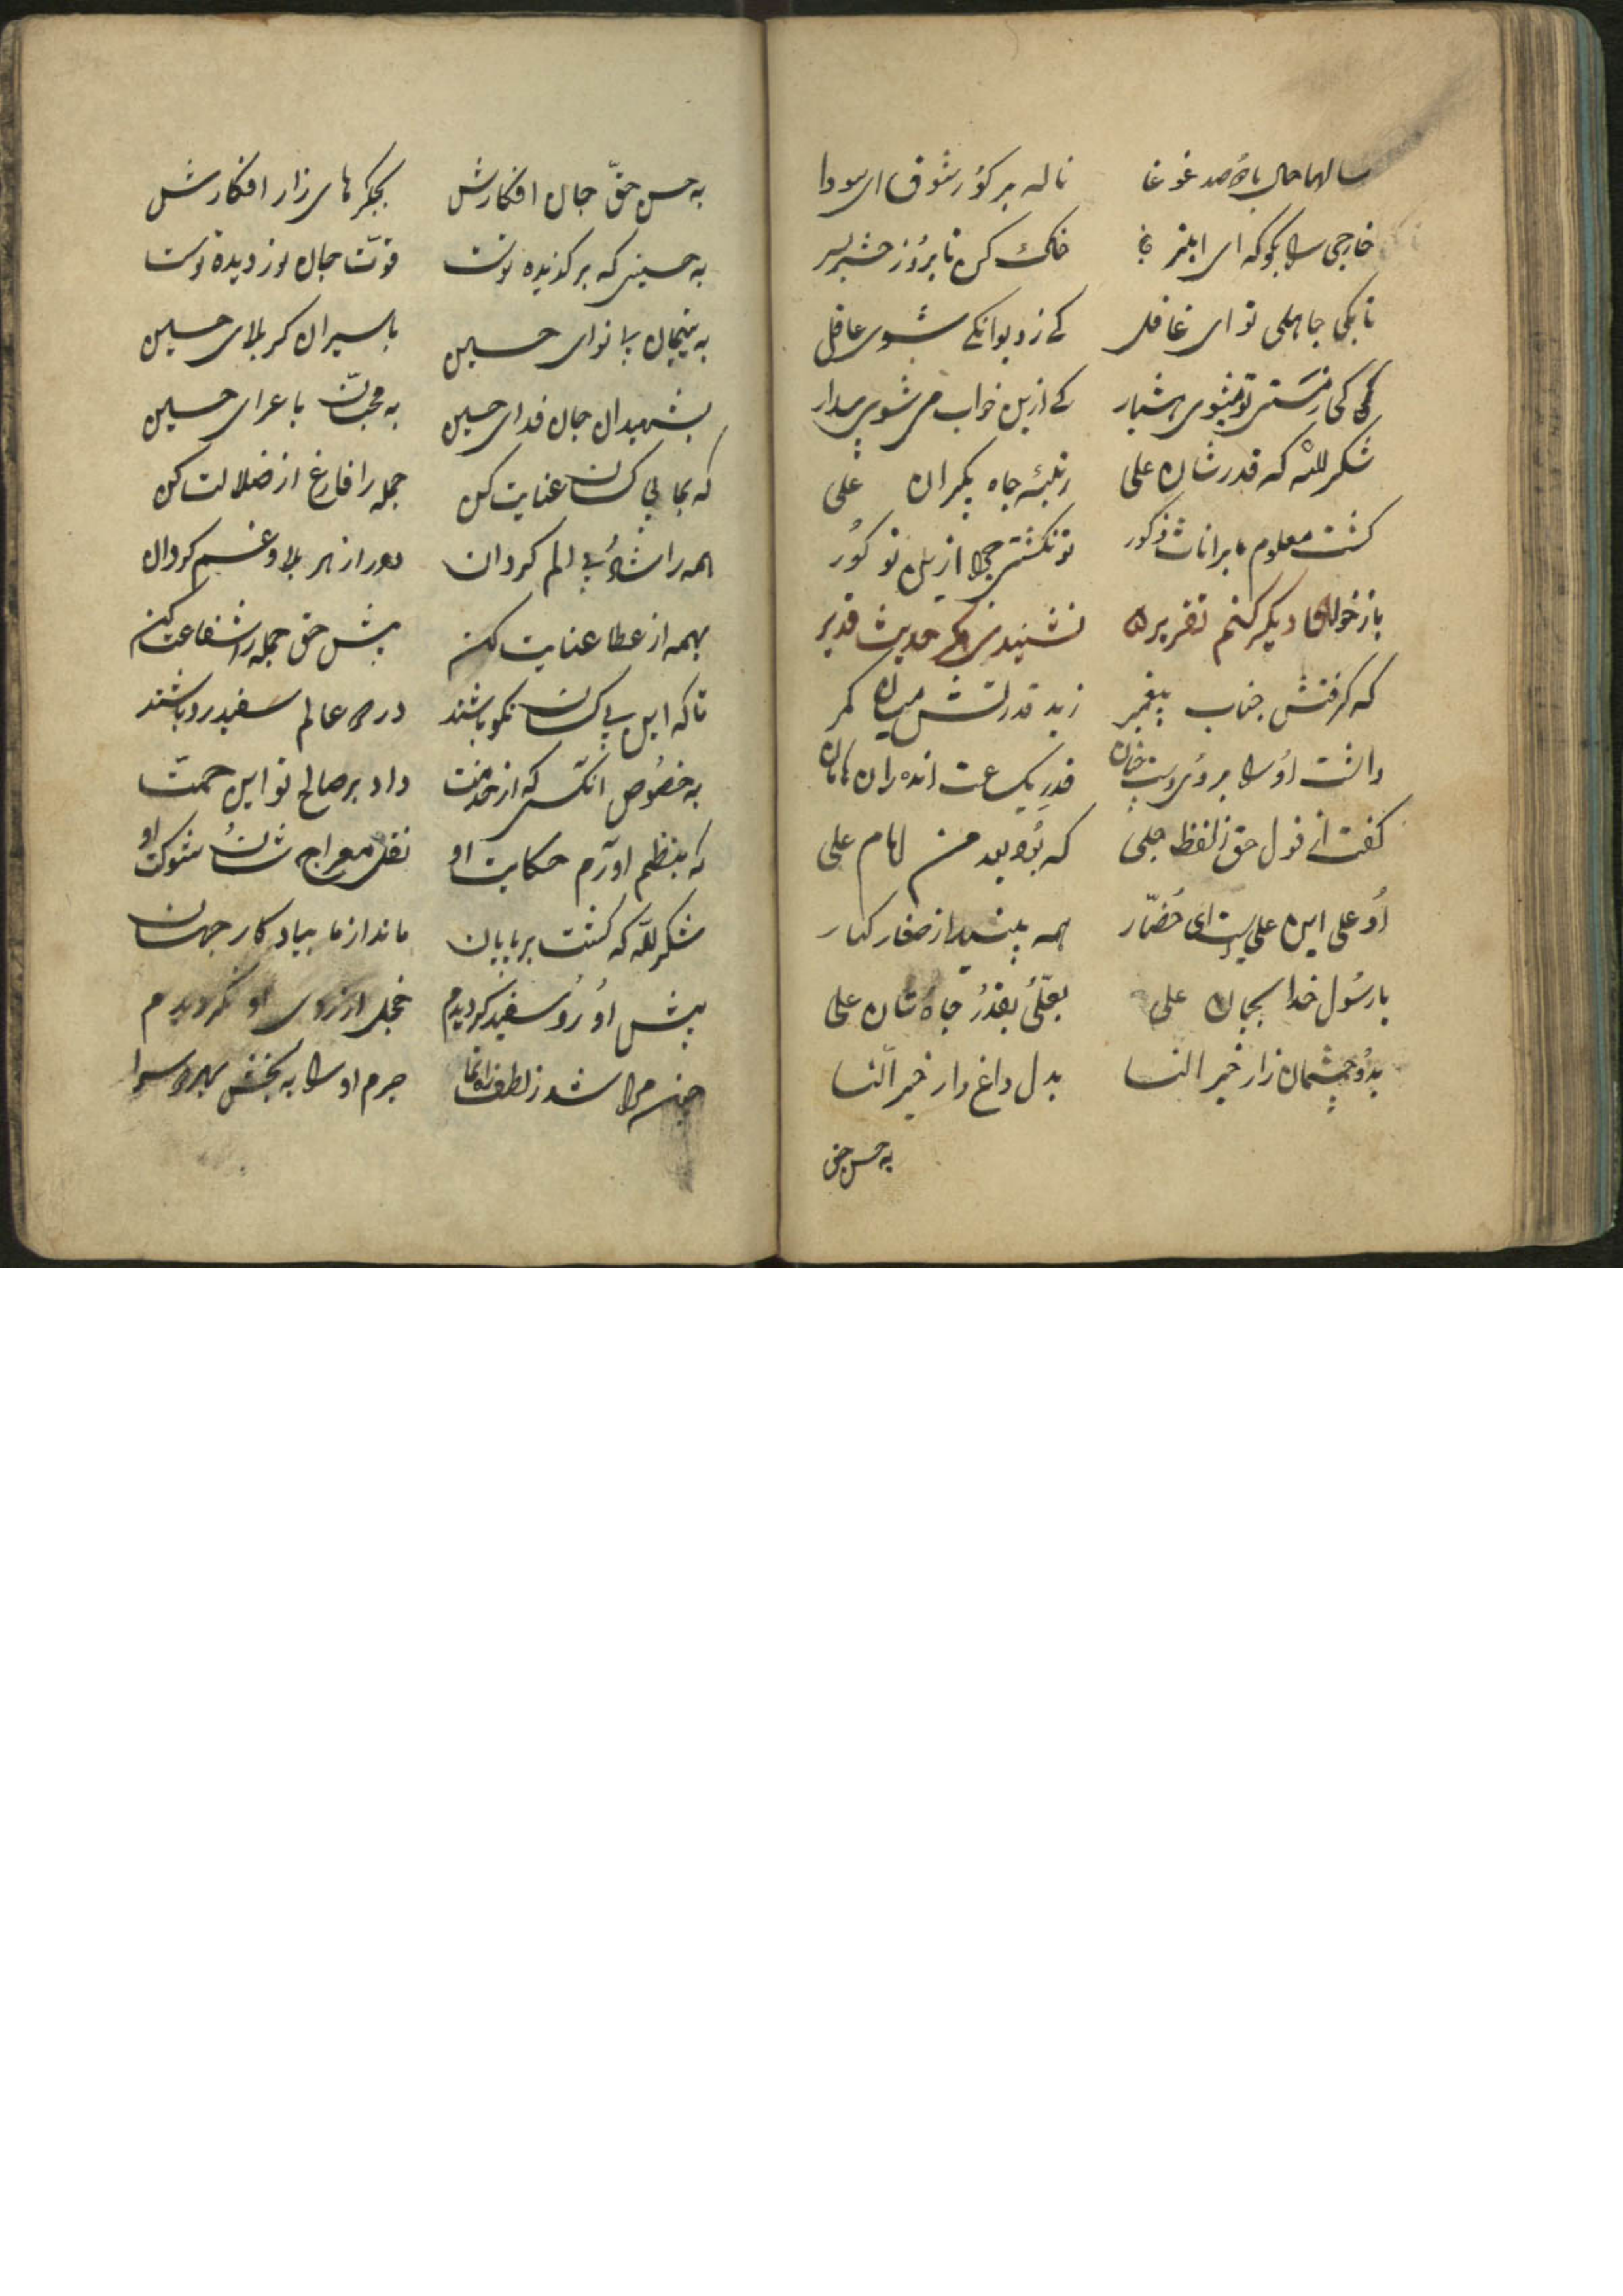 سالهاحال با صد غوغا ناله بر کور شوق ای سودا
خارجی را بکو که ای ابتر خاک کن تا بروز حشر بسر
تا بکی جاهلی تو ای غافل کے ز دیوانکے شوی عاقل
کے ز مستی تو میشوی هشیار کے ازین خواب می شوی بیدار
شکر لله که قدر شان علی رتبۀ جاه بیکران علی
کشت معلوم ما بر اناث ذکور تو نکشتی جدا ازین تو کور
باز خواهم دیکر کنم تقریر نشنیدی مکر حدیث قدیر
که کرفتش جناب پیغمبر زید قدرتش میان کمر
داشت اورا بروی دست قدر یک ساعت اندران
کفت از قول حق زلفظ جلی که بود بعد من امام علی
او علی این علیست ای حضار همه بینید از صغار کبار
یا رسول خدا بجان علی بعلی بقدر جاه شان علی
بدو چشمان زار خیر النسا بدل داغ دار خیر النسا
به حسن حق
به حسن حق جان افکارش بجکرهای زار افکارش
به حسینی که برکزیده توست قوت جان نور دیده توست
به یتیمان بینوای حسین باسیران کربلای حسین
بشهیدان جان فدای حسین به محبان با عزای حسین
که بما بی کسان عنایت کن جمله را فارغ از ضلالت کن
همه را شاد بی الم کردان دور از هر بلا و غم کردان
بهمه از عطا عنایت کن پیش حق جمله را شفاعت کن
تا که این بی کسان نکو باشند در دو عالم سفید رو باشند
به خصوص آنکسی که از خدمت داد بر صالح تو این همت
که بنظم اورم حکایت او نقل معراج شان شوکت او
شکر لله که کشت بر پایان ماند از ما بیادکار جهان
پیش او رو سفید کردیدم خجل از روی او نکردیدم
چون مرا شد ز لطف راه نما جرم او را به بخش بهر دو سرا